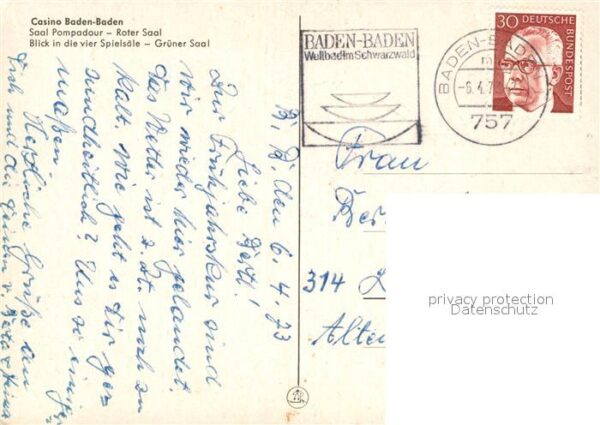 Casino Baden-Baden
Saal Pompadour – Roter Saal
Blick in die vier Spielsäle – Grüner Saal
BADEN-BADEN
Weltbad im Schwarzwald
BADEN-BADEN
-6.4.73
757
30 DEUTSCHE BUNDESPOST
B. B., den 6.4.73
Liebe
Zur Frühjahrskur sind
wir wieder hier gelandet.
Das Wetter ist z. Zt. noch zu
kalt. Wie geht es Dir ge-
sundheitlich? Uns so einiger-
maßen
Herzliche Grüße an
Dich und die
Frau
314
privacy protection
Datenschutz